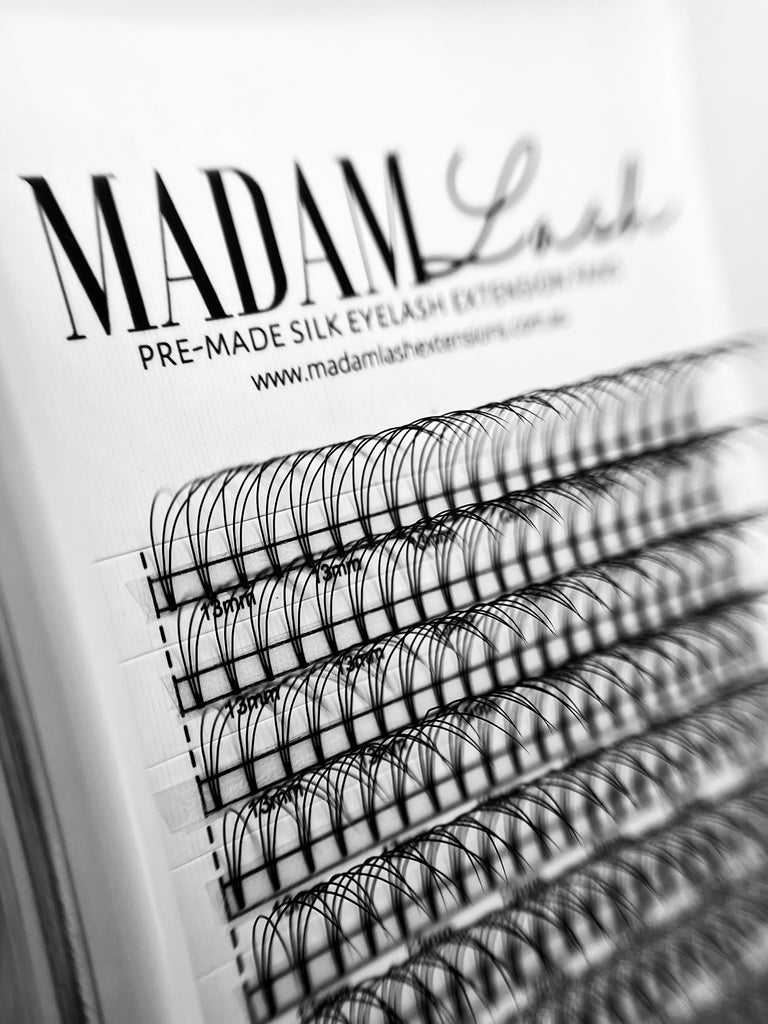 MADAM Lash
PRE-MADE SILK EYELASH EXTENSION FANS
www.madamlashextensions.com.au
13mm 13mm 13mm
13mm 13mm
13mm